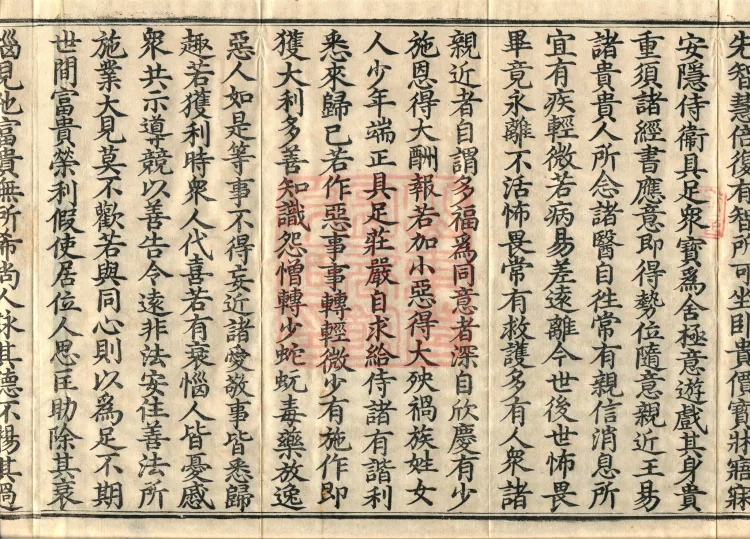 先智慧倍復有智所可坐臥貴價寶牀寤寐
安隱侍衞具足衆寶爲舍極意遊戲其身貴
重須諸經書應意即得勢位隨意親近王易
諸貴貴人所念諸醫自往常有親信消息所
宜有疾輕微若病易差遠離今世後世怖畏
畢竟永離不活怖畏常有救護多有人衆諸
親近者自謂多福爲同意者深自欣慶有少
施恩得大酬報若加小惡得大殃禍族姓女
人少年端正具足莊嚴自求給侍諸有諧利
悉來歸己若作惡事事轉輕微少有施作即
獲大利多善知識怨憎轉少蛇蚖毒藥放逸
惡人如是等事不得妄近諸愛敬事皆悉歸
趣若獲利時衆人代喜若有衰惱人皆憂慼
衆共示導競以善告令遠非法安住善法所
施業大見莫不歡若與同心則以爲足不期
世間富貴榮利假使居位人思匡助除其衰
惱見他富貴無所希尚人詠其德不揚其過